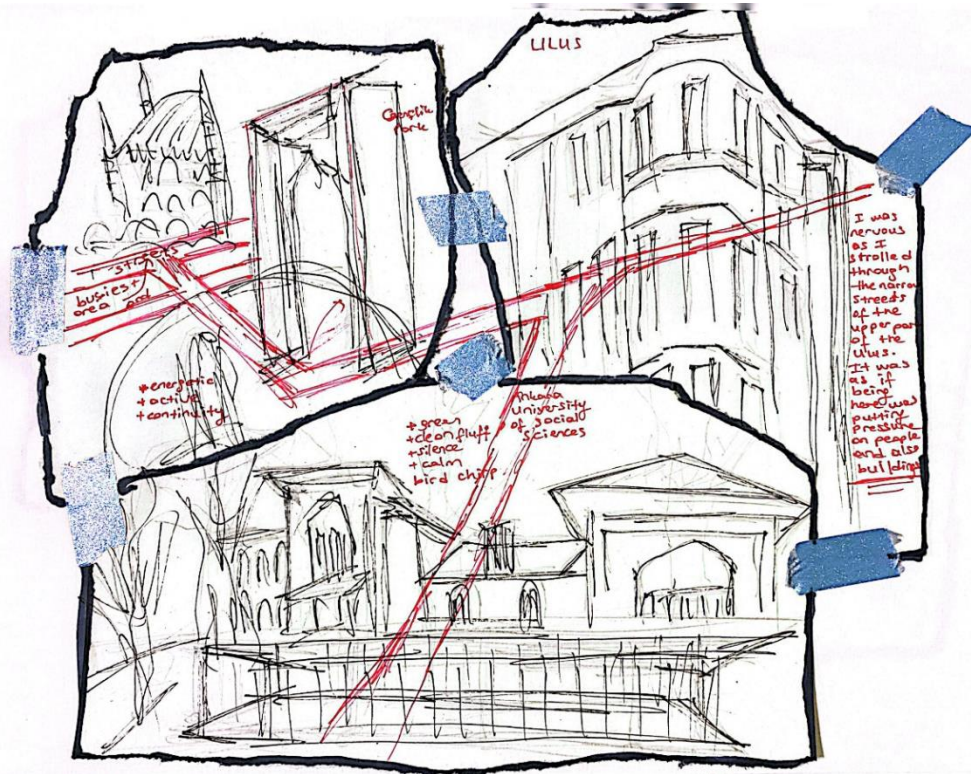 ULUS
Gençlik
Park
streets
busiest
area and
+ energetic
+ active
+ continuity
+ green
+ clean fluff
+ silence
+ calm
bird chirp
Ankara
University
of Social
Sciences
I was
nervous
as I
strolled
through
the narrow
streets
of the
upper part
of the
Ulus.
It was
as if
being
here was
putting
pressure
on people
and also
buildings